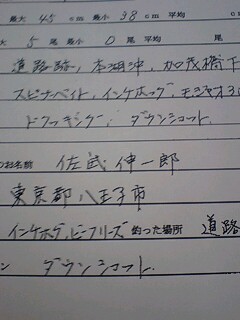 最大 45 cm 最小 38 cm 平均
大 5 尾 最小 0 尾 平均 尾
道路跡, 本湖沖, 加茂橋下
スピナベイト, インチホッグ,
ダウンショット
のお名前 佐武伸一郎
東京都八王子市
インチホッグ, ビーフリーズ 釣った場所 道路
ン ダウンショット